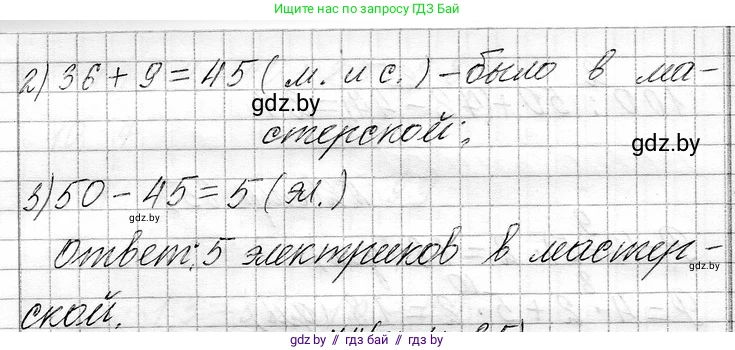 Ищите нас по запросу ГДЗ Бай
2) 36 + 9 = 45 ( м. и с. ) – было в ма-
gdz.by
стерской;
gdz.by
3) 50 – 45 = 5 ( эл. )
gdz.by
Ответ: 5 электриков в мастер-
gdz.by
ской.
gdz.by // гдз.бай // gdz.by